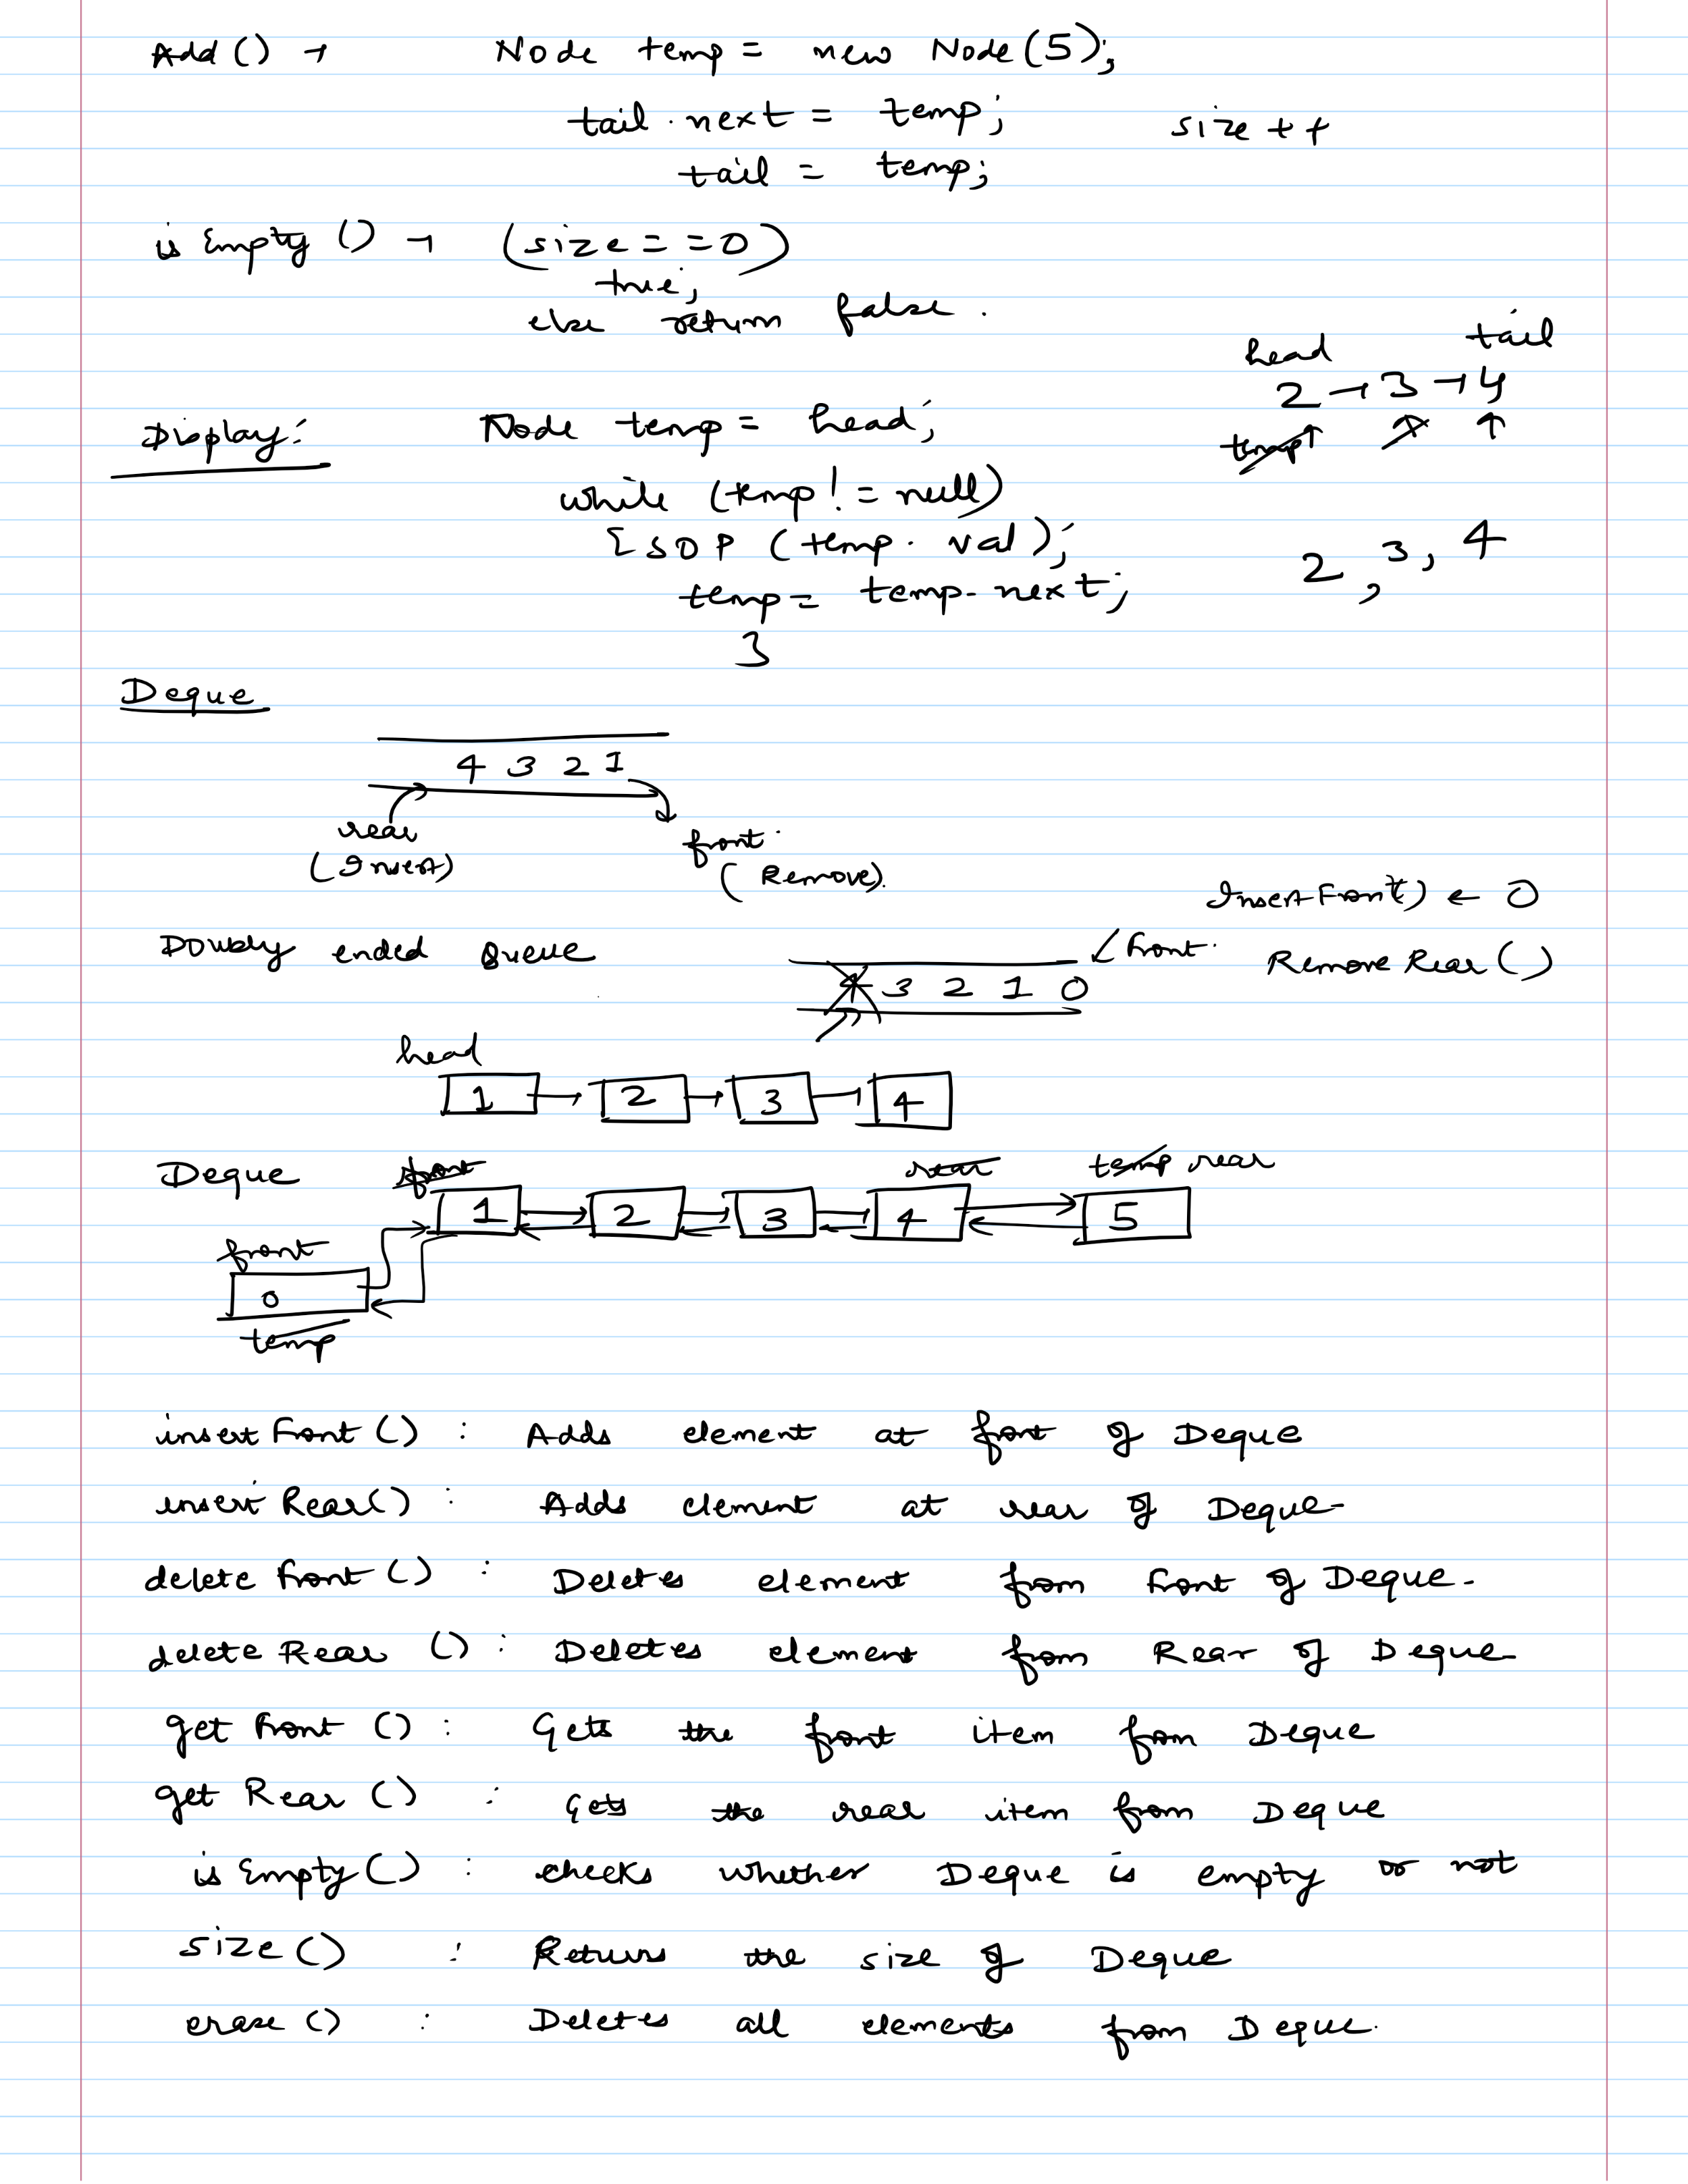 Add () → Node temp = new Node (5);
tail . next = temp; size ++
tail = temp;
is Empty () → (size = = 0)
true;
else return false .
head tail
2 → 3 → 4
temp ↑ ↑ ↑
Display: Node temp = head;
while (temp! = null)
{ SOP (temp. val);
2 , 3 , 4
temp = temp. next;
}
Deque
4 3 2 1
rear
(Insert)
front
(Remove).
InsertFront() ← 0
Doubly ended Queue
front. Remove Rear ()
4 3 2 1 0
head
1 → 2 → 3 → 4
Deque front rear temp rear
1 2 3 4 5
front
0
temp
insert Front () : Adds element at front of Deque
insert Rear() : Adds element at rear of Deque-
delete Front () : Deletes element from Front of Deque-
delete Rear () : Deletes element from Rear of Deque-
get Front () : Gets the front item from Deque
get Rear () : Gets the rear item from Deque
is Empty () : checks whether Deque is empty or not
size () : Returns the size of Deque
erase () : Deletes all elements from Deque.